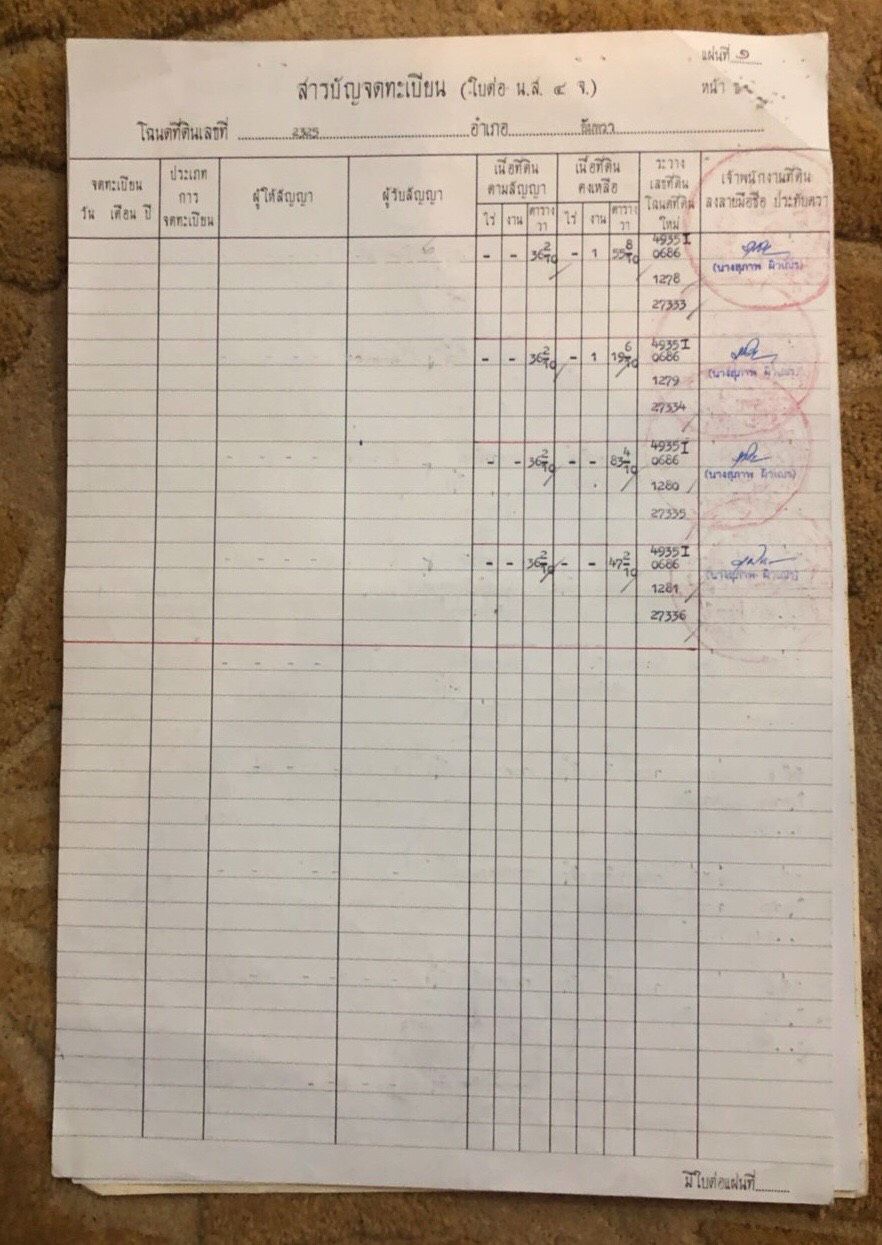 แผ่นที่ ๑
สารบัญจดทะเบียน (ใบต่อ น.ส. ๔ จ.)
หน้า
โฉนดที่ดินเลขที่ 2325 อำเภอ อัมพวา
จดทะเบียน วัน เดือน ปี
ประเภทการจดทะเบียน
ผู้ให้สัญญา
ผู้รับสัญญา
เนื้อที่ดินตามสัญญา
ไร่ งาน ตารางวา
เนื้อที่ดินคงเหลือ
ไร่ งาน ตารางวา
ระวาง เลขที่ดิน โฉนดที่ดินใหม่
เจ้าพนักงานที่ดิน ลงลายมือชื่อ ประทับตรา
- - 36 2/10 - 1 55 8/10 4935 I 0686
1278 (นางสุภาพ
27333
- - 36 2/10 - 1 19 6/10 4935 I 0686
1279 (นางสุภาพ
27334
- - 36 2/10 - - 83 4/10 4935 I 0686
1280 (นางสุภาพ
27335
- - 36 2/10 - - 47 2/10 4935 I 0686
1281 (นางสุภาพ
27336
มีใบต่อแผ่นที่